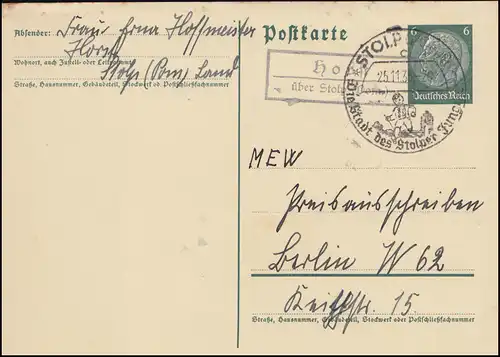 Absender: Frau Erna Hoffmeister
Horst
Wohnort, auch Zustell- oder Leitpostamt
Stolp (Pom) Land
Straße, Hausnummer, Gebäudeteil, Stockwerk od. Postschließfachnummer
Postkarte
6 6
Deutsches Reich
STOLP
25.11.3
Die Stadt des Stolper Jung
Ho
über Stolp
MEW
Preisausschreiben
Berlin W 62
Keithstr. 15.
Straße, Hausnummer, Gebäudeteil, Stockwerk oder Postschließfachnummer